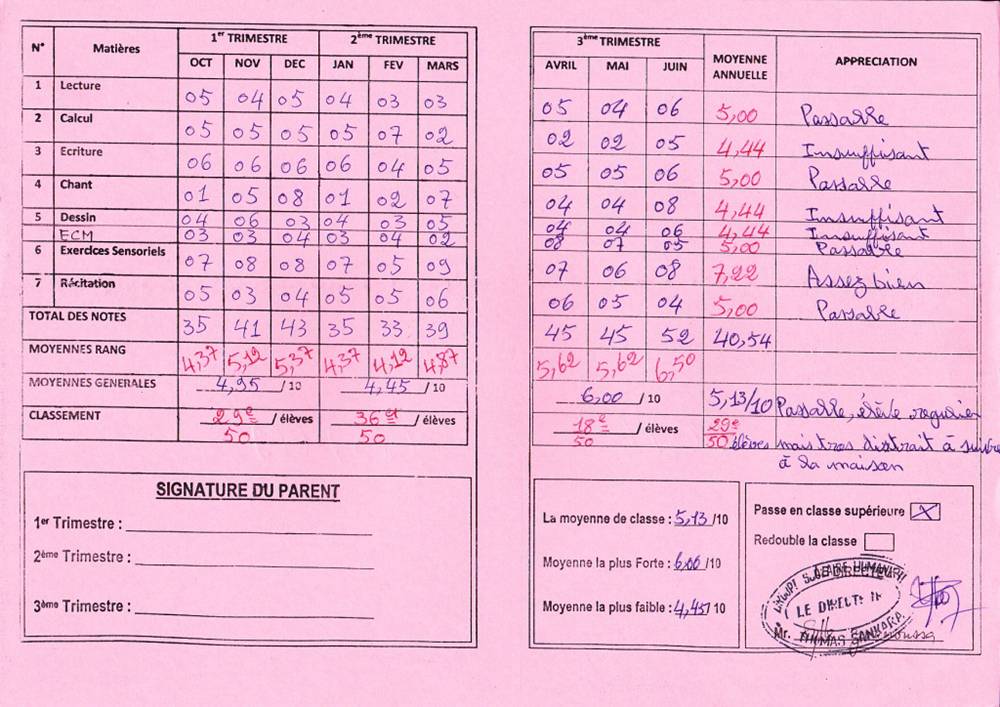 N° Matières 1er TRIMESTRE 2ème TRIMESTRE
OCT NOV DEC JAN FEV MARS
1 Lecture 05 04 05 04 03 03
2 Calcul 05 05 05 05 07 02
3 Ecriture 06 06 06 06 04 05
4 Chant 01 05 08 01 02 07
5 Dessin 04 06 03 04 03 05
ECM 03 03 04 03 04 02
6 Exercices Sensoriels 07 08 08 07 05 09
7 Récitation 05 03 04 05 05 06
TOTAL DES NOTES 35 41 43 35 33 39
MOYENNES RANG 4,37 5,12 5,37 4,37 4,12 4,87
MOYENNES GENERALES 4,95 /10 4,45 /10
CLASSEMENT 29e /élèves 36e /élèves
50 50
SIGNATURE DU PARENT
1er Trimestre :
2ème Trimestre :
3ème Trimestre :
3ème TRIMESTRE MOYENNE ANNUELLE APPRECIATION
AVRIL MAI JUIN
05 04 06 5,00 Passable
02 02 05 4,44 Insuffisant
05 05 06 5,00 Passable
04 04 08 4,44 Insuffisant
04 04 06 4,44 Insuffisant
08 07 05 5,00 Passable
07 06 08 7,22 Assez bien
06 05 04 5,00 Passable
45 45 52 40,54
5,62 5,62 6,50
6,00 /10 5,13/10 Passable, élève
18e /élèves 29e
50 50 élèves mais tros distrait à suivre
à la maison
La moyenne de classe : 5,13 /10
Moyenne la plus Forte : 6,00 /10
Moyenne la plus faible : 4,45 /10
Passe en classe supérieure X
Redouble la classe
LE DIRECTEUR
Mr.
THOMAS SANKARA